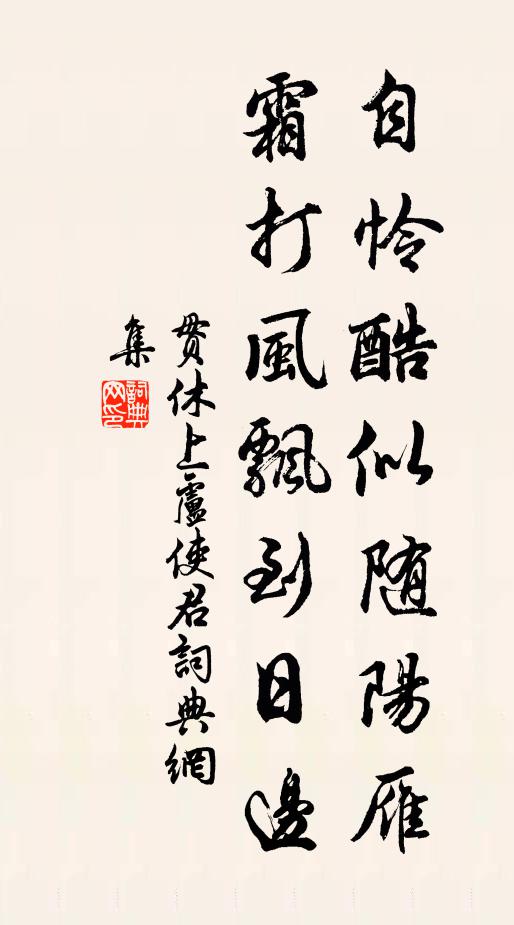 自怜酷似随陽雁
霜打風飄到日邊
貫休上盧使君詞典網
集
詞典網印